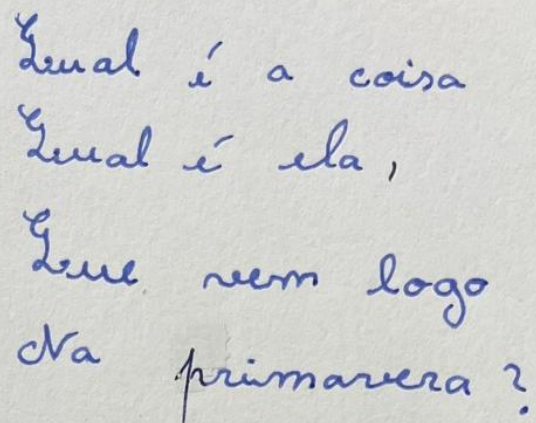 Qual é a coisa
Qual é ela,
Que vem logo
Na primavera?